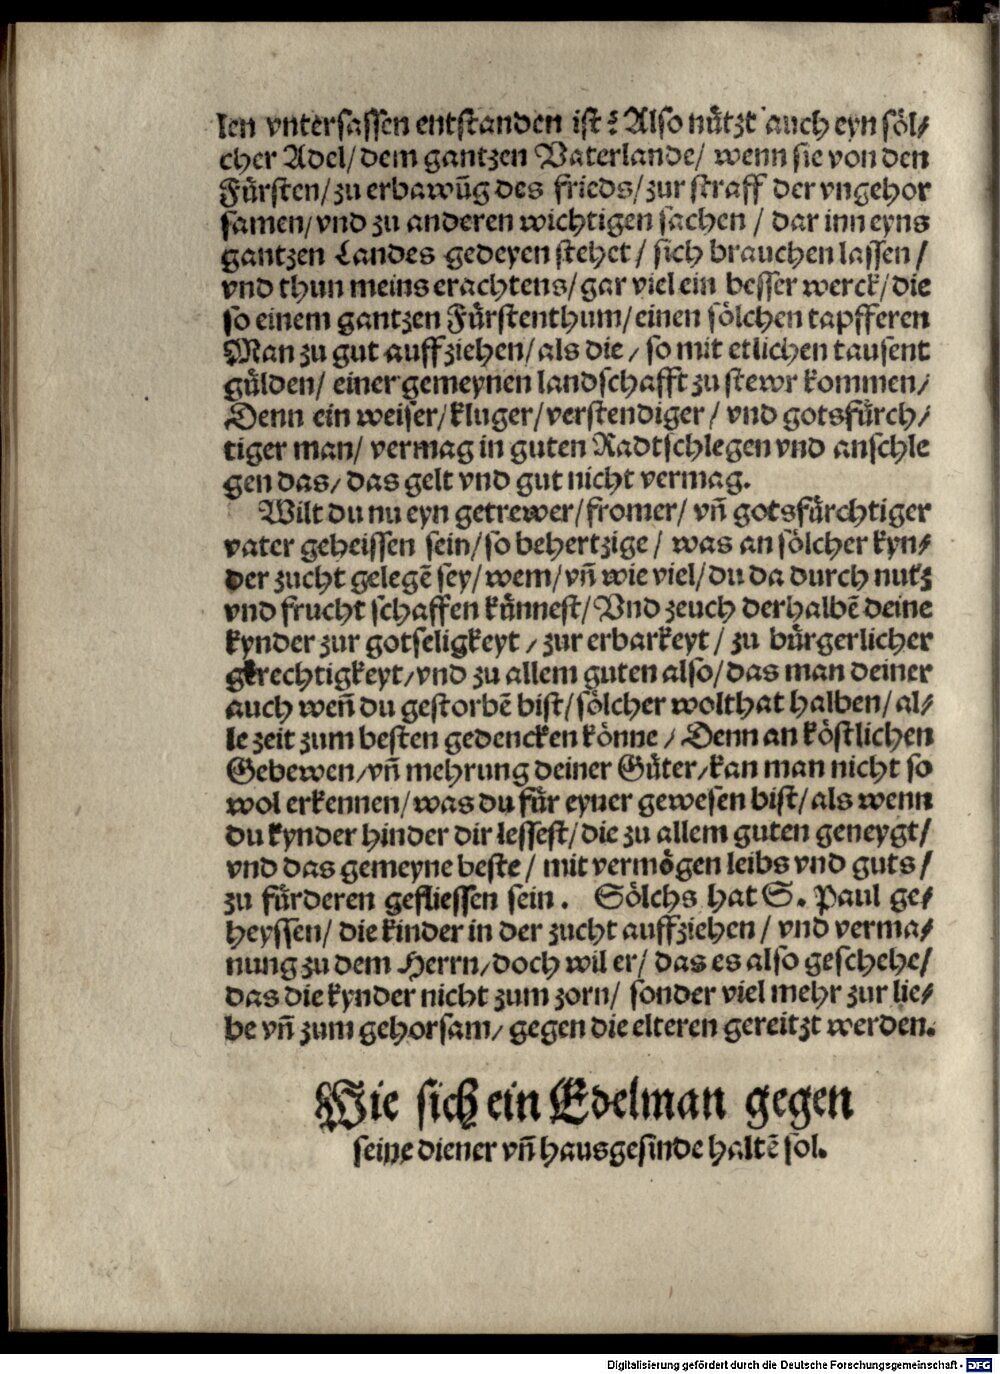 len vntersassen entstanden ist? Also nützt auch eyn söl/
cher Adel/ dem gantzen Vaterlande/ wenn sie von den
Fürsten/ zu erbawūg des frieds/ zur straff der vngehor
samen/ vnd zu anderen wichtigen sachen / dar inn eyns
gantzen Landes gedeyen stehet / sich brauchen lassen /
vnd thun meins erachtens/ gar viel ein besser werck/ die
so einem gantzen Fürstenthum/ einen sölchen tapfferen
Man zu gut auffziehen/ als die / so mit etlichen tausent
gülden/ einer gemeynen landschafft zu stewr kommen/
Denn ein weiser/ kluger/ verstendiger / vnd gotsfürch/
tiger man/ vermag in guten Radtschlegen vnd anschle
gen das/ das gelt vnd gut nicht vermag.
Wilt du nu eyn getrewer/ fromer/ vñ gotsfürchtiger
vater geheissen sein/ so behertzige / was an sölcher kyn/
der zucht gelegē sey/ wem/ vñ wie viel/ du da durch nutz
vnd frucht schaffen künnest/ Vnd zeuch derhalbē deine
kynder zur gotseligkeyt / zur erbarkeyt / zu bürgerlicher
gerechtigkeyt/ vnd zu allem guten also/ das man deiner
auch weñ du gestorbē bist/ sölcher wolthat halben/ al/
le zeit zum besten gedencken könne / Denn an köstlichen
Gebewen/ vñ mehrung deiner Güter/ kan man nicht so
wol erkennen/ was du für eyner gewesen bist/ als wenn
du kynder hinder dir lessest/ die zu allem guten geneygt/
vnd das gemeyne beste / mit vermögen leibs vnd guts /
zu fürderen gefliessen sein. Sölchs hat S. Paul ge/
heyssen/ die kinder in der zucht auffziehen / vnd verma/
nung zu dem Herrn/ doch wil er/ das es also geschehe/
das die kynder nicht zum zorn/ sonder viel mehr zur lie/
be vñ zum gehorsam/ gegen die elteren gereitzt werden.
Wie sich ein Edelman gegen
seine diener vñ hausgesinde haltē sol.
Digitalisierung gefördert durch die Deutsche Forschungsgemeinschaft - DFG